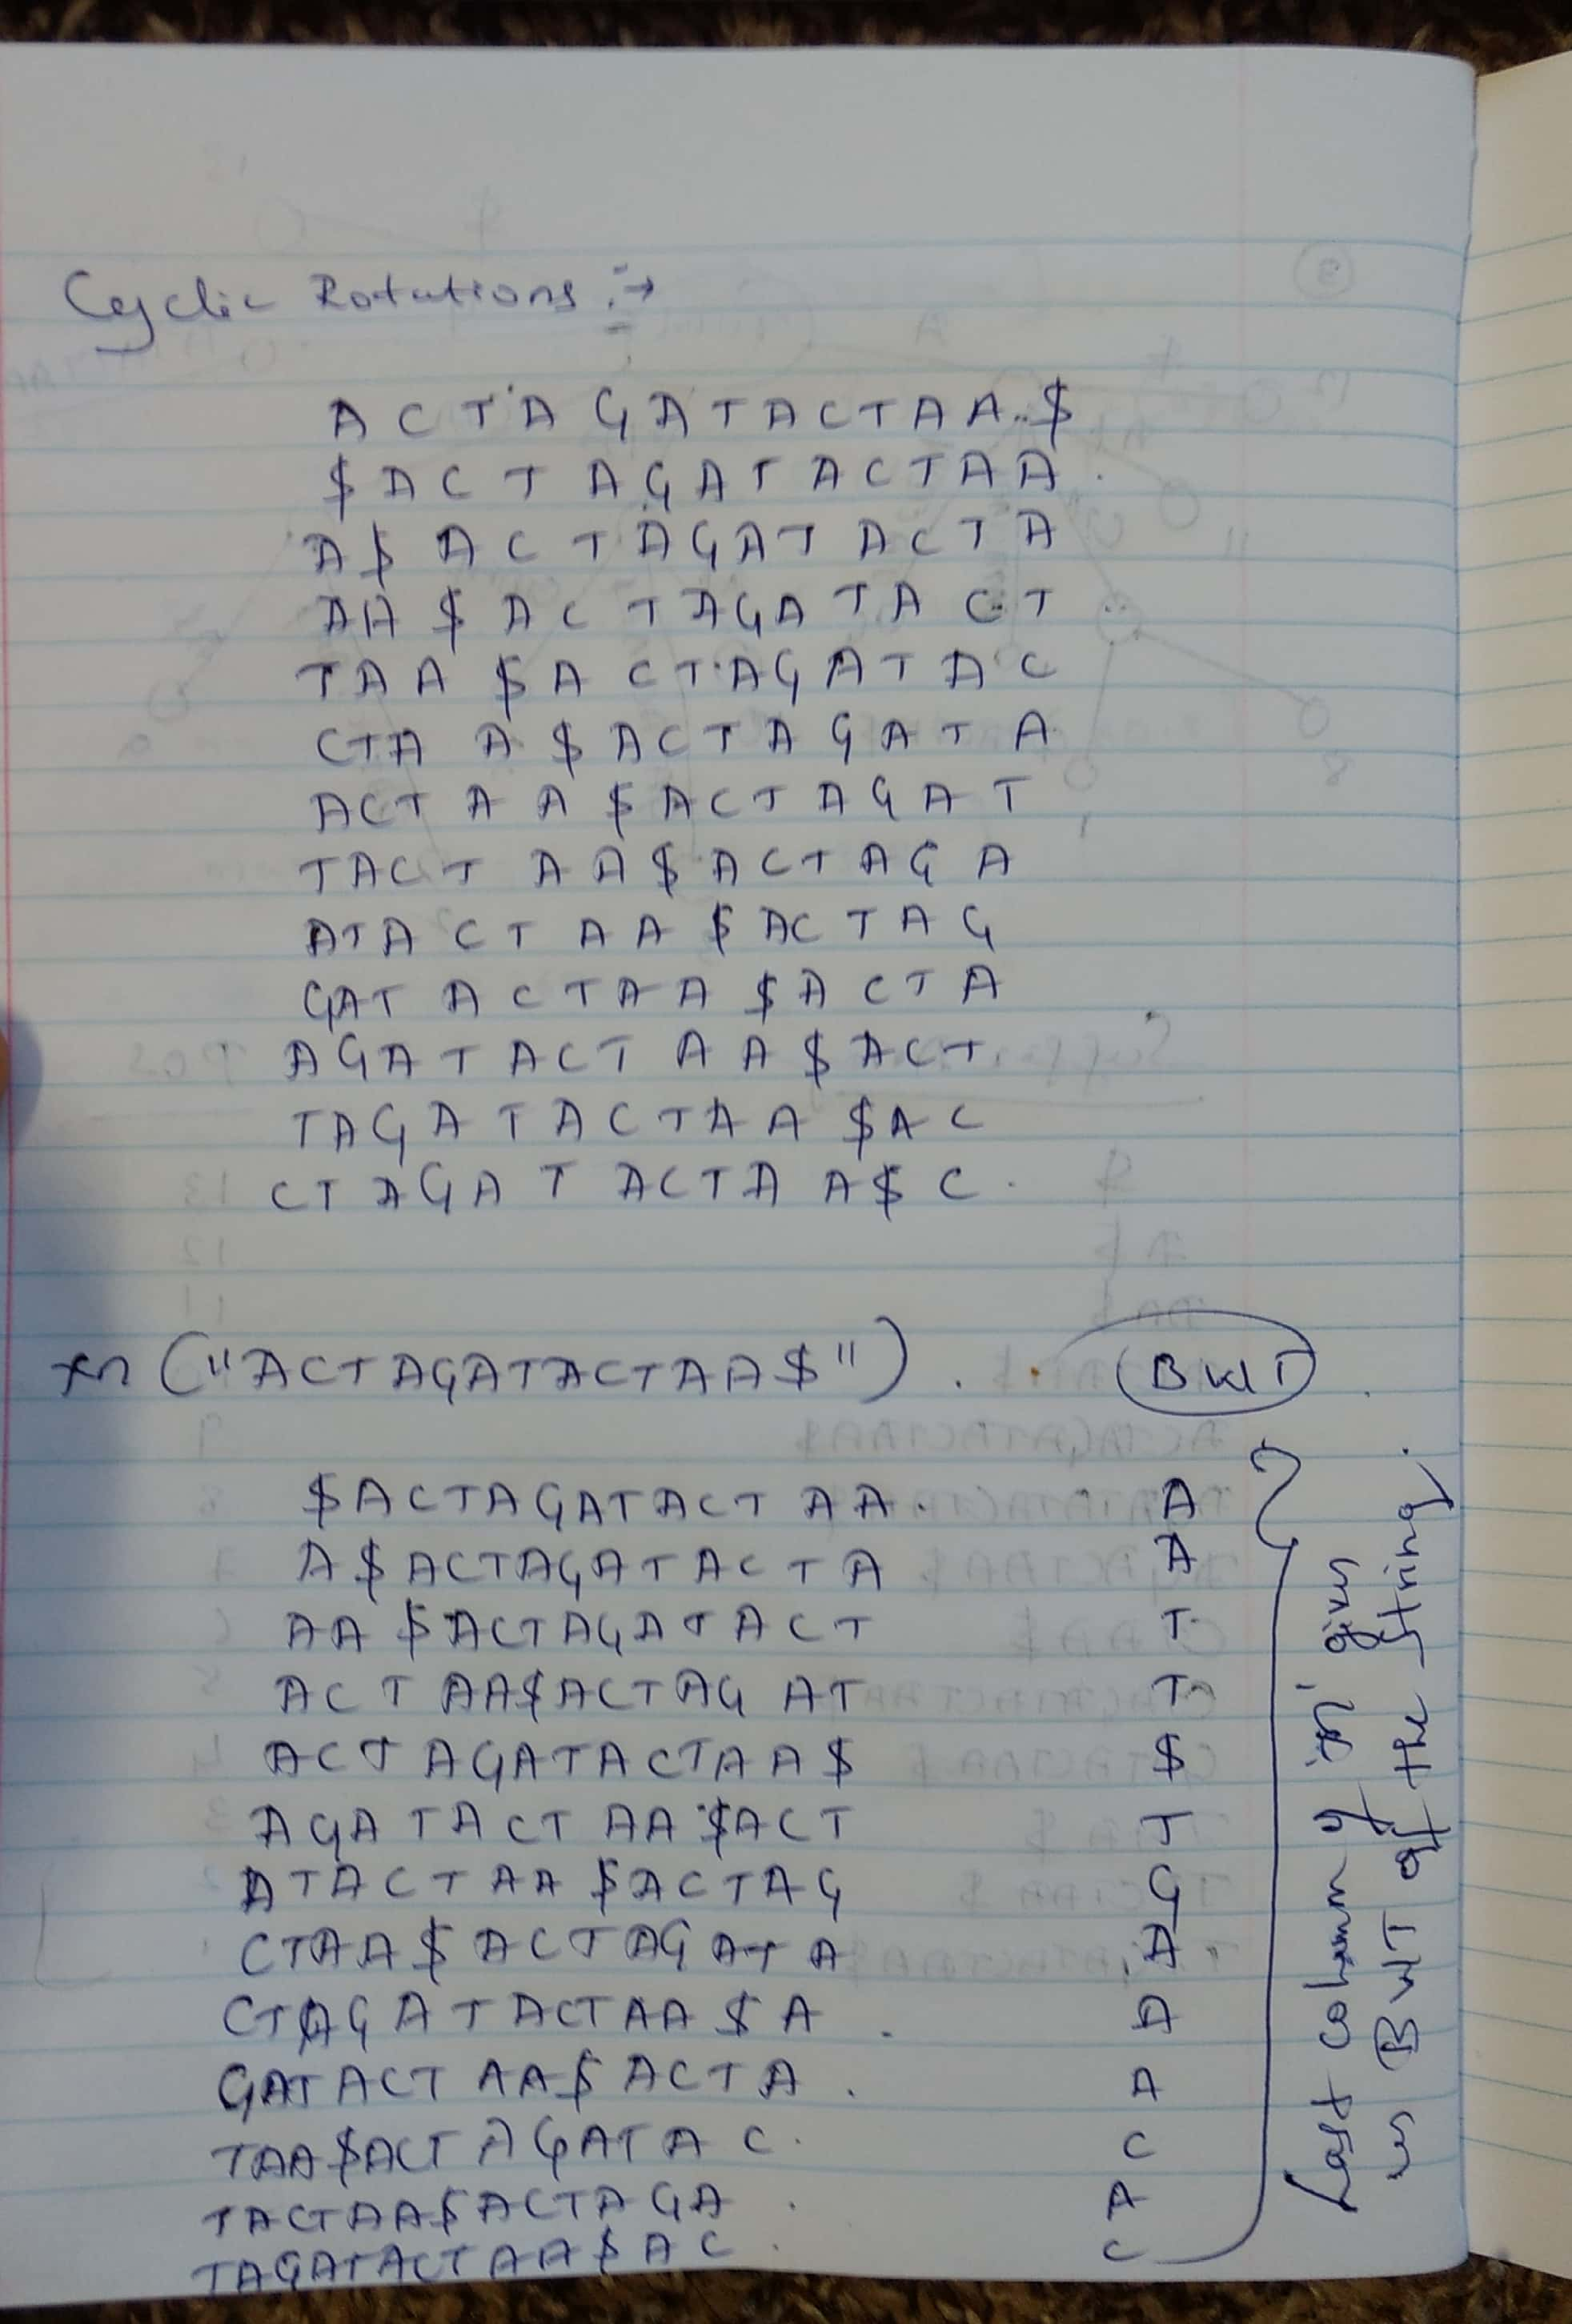 Cyclic Rotations :→
ACTAGATACTAA$
$ACTAGATACTAA
A$ACTAGATACTA
AA$ACTAGATACT
TAA$ACTAGATAC
CTAA$ACTAGATA
ACTAA$ACTAGAT
TACTAA$ACTAGA
ATACTAA$ACTAG
GATACTAA$ACTA
AGATACTAA$ACT
TAGATACTAA$AC
CTAGATACTAA$C.
("ACTAGATACTAA$"). BWT
$ACTAGATACTAA. A
A$ACTAGATACTA A
AA$ACTAGATACT T
ACTAA$ACTAGAT T
ACTAGATACTAA$ $
AGATACTAA$ACT T
ATACTAA$ACTAG G
CTAA$ACTAGATA A
CTAGATACTAA$A. A
GATACTAA$ACTA. A
TAA$ACTAGATAC. C
TACTAA$ACTAGA. A
TAGATACTAA$AC. C
Last column of given
is BWT of the string.